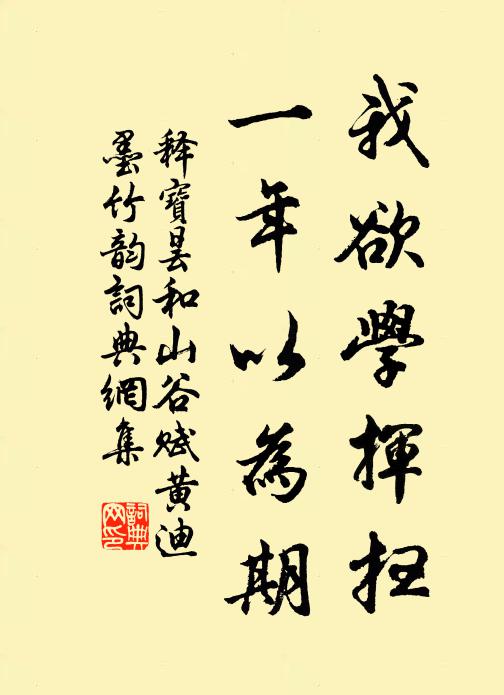 我欲學揮抂
一年以為期
释寶昙和山谷赋黄迪
墨竹韵詞典網集
詞典
网印